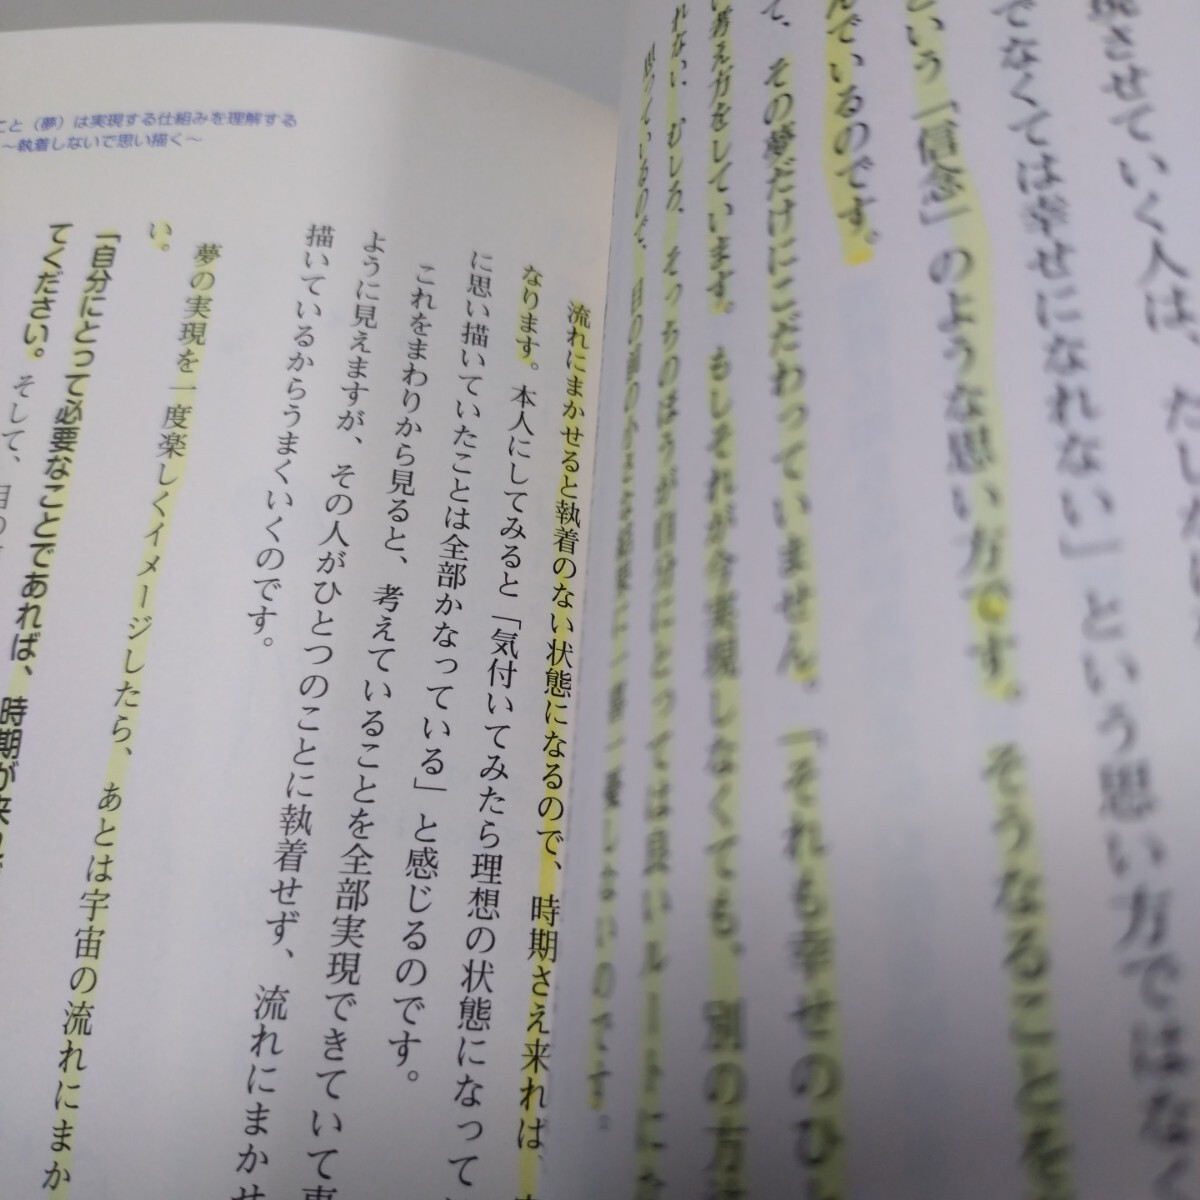 現させていく人は、
でなくては幸せになれない」という思い方ではなく
という「信念」のような思い方です。そうなることを
んでいるのです。
て、その夢だけにこだわっていません。「それも幸せのひ
い考え方をしています。もしそれが今実現しなくても、別の方
れない、むしろ、そっちのほうが自分にとっては良いルートにな
思っているので、目の前の
こと（夢）は実現する仕組みを理解する
〜執着しないで思い描く〜
流れにまかせると執着のない状態になるので、時期さえ来れば、
なります。本人にしてみると「気付いてみたら理想の状態になって
に思い描いていたことは全部かなっている」と感じるのです。
これをまわりから見ると、考えていることを全部実現できていて
ように見えますが、その人がひとつのことに執着せず、流れにまかせ
描いているからうまくいくのです。
夢の実現を一度楽しくイメージしたら、あとは宇宙の流れにまか
い。
「自分にとって必要なことであれば、時期が来れば
てください。そして、目の